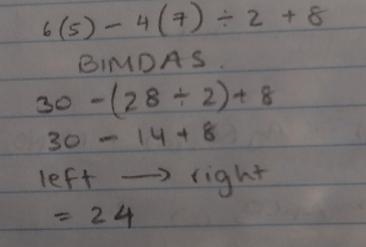 6(5) - 4(7) ÷ 2 + 8
BIMDAS.
30 - (28 ÷ 2) + 8
30 - 14 + 8
left → right
= 24